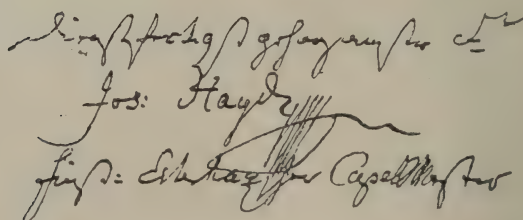 dienstfertigst gehorsamster Dr
Jos: Haydn
fürst: Esterhazischer Capell Meister